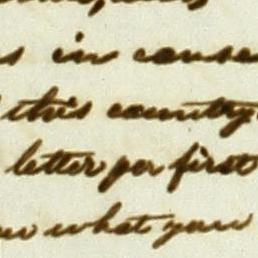 in cause
this country
letter per first
what your